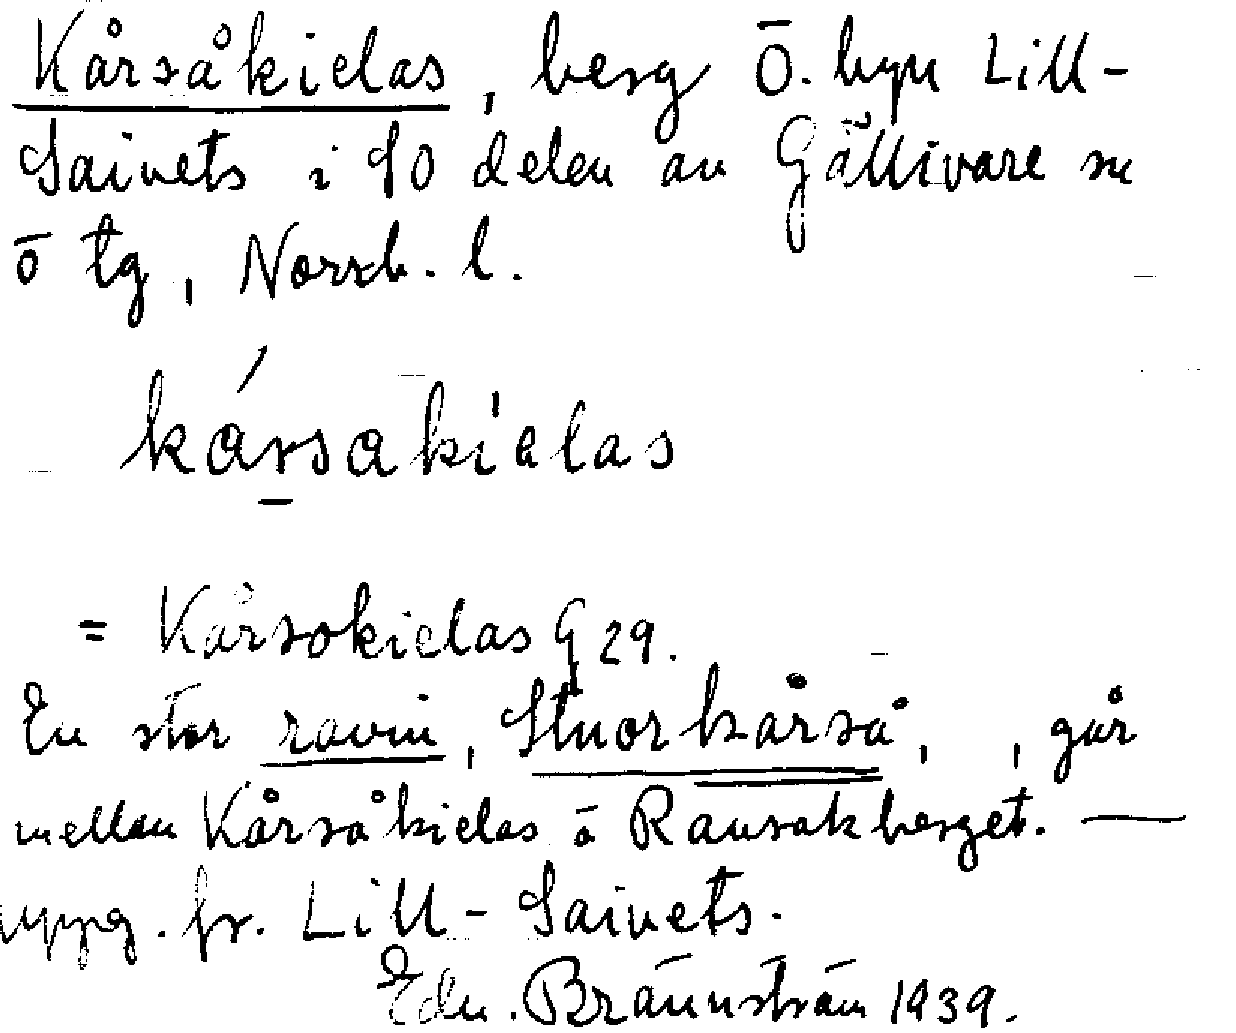 Kårsåkielas, berg Ö. byn Lill-
Saivets i SO delen av Gällivare sn
ö tg, Norrb. l.
kársakielas
= Kårsokielas G 29.
En stor ravin, Stuorkårså, , går
mellan Kårsåkielas o Rausakberget. —
uppg. fr. Lill-Saivets.
Edv. Brännström 1939.